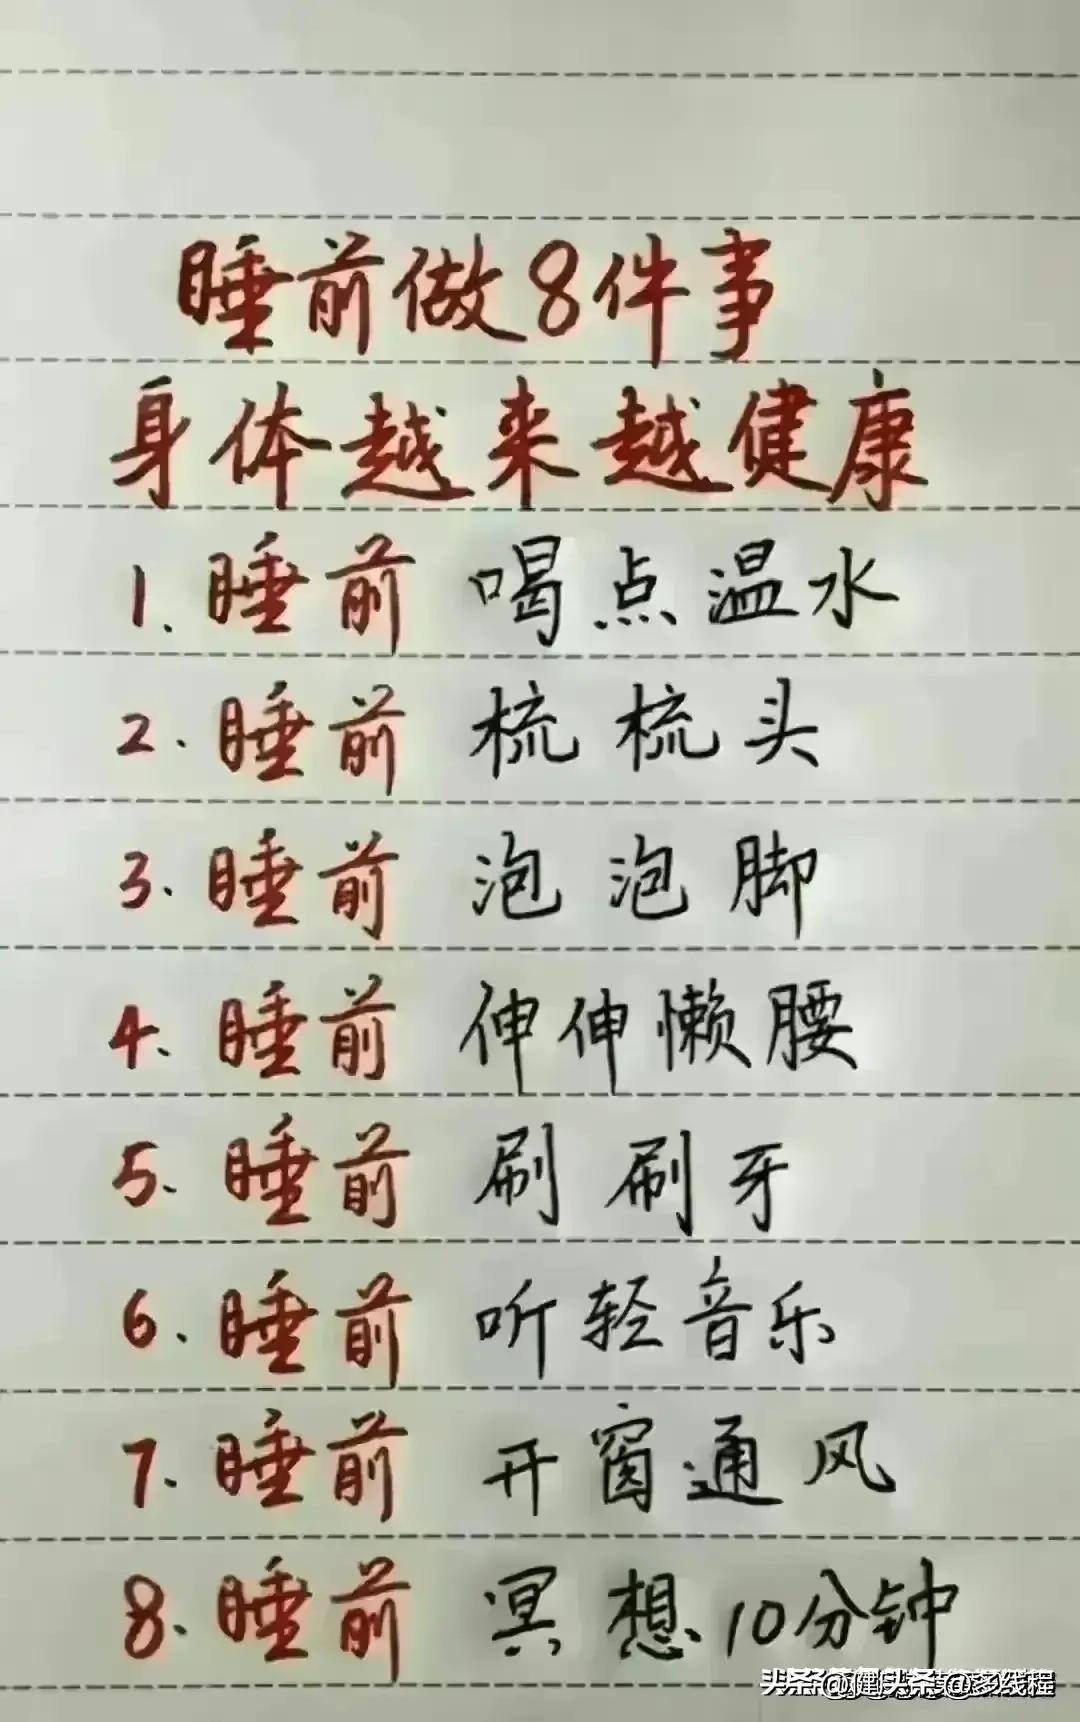 睡前做8件事
身体越来越健康
1.睡前 喝点温水
2.睡前 梳梳头
3.睡前 泡泡脚
4.睡前 伸伸懒腰
5.睡前 刷刷牙
6.睡前 听轻音乐
7.睡前 开窗通风
8.睡前 冥想10分钟
头条 @健 头条 @多线程